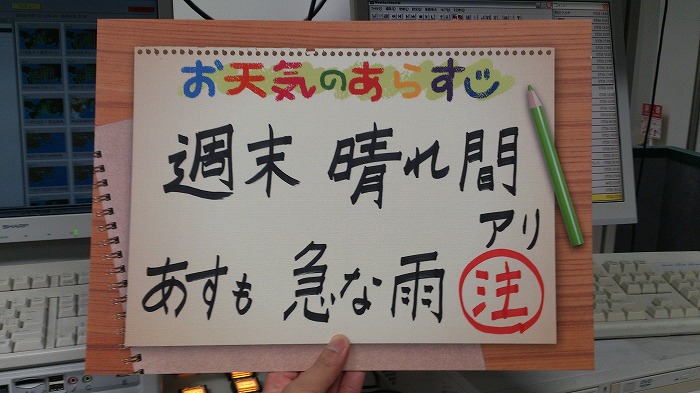 お天気のあらすじ
週末 晴れ間
アリ
あすも 急な雨 注
SHARP